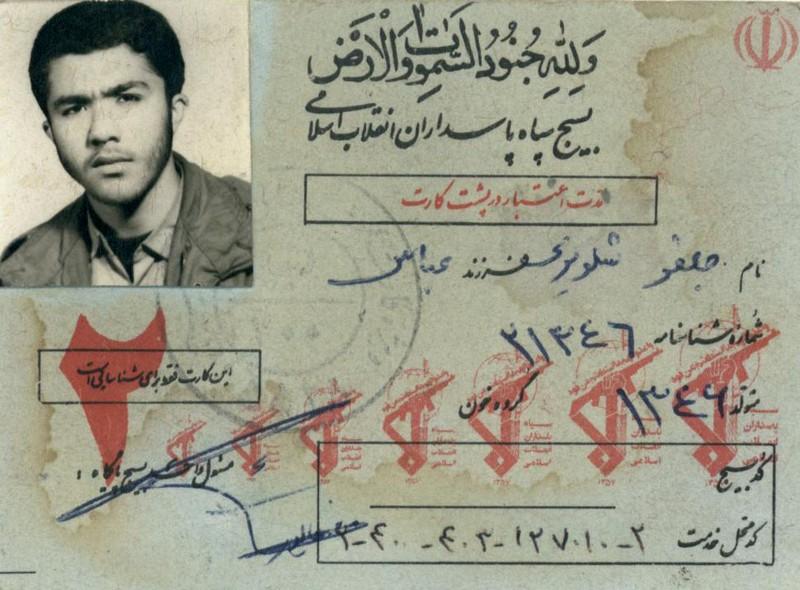 وَلِلّهِ جُنُودُ السَّمواتِ وَالْاَرْضِ
بسیج سپاه پاسداران انقلاب اسلامی
مدت اعتبار در پشت کارت
نام جعفر فرزند عباس
شماره شناسنامه ۲۱۳۴۶
این کارت فقط برای شناسایی است
۲
متولد ۱۳۴۶ گروه خون
سپاه پاسداران انقلاب اسلامی
۱۳۵۷
کد بسیج
مسئول واحد بسیج پایگاه :
کد محل خدمت